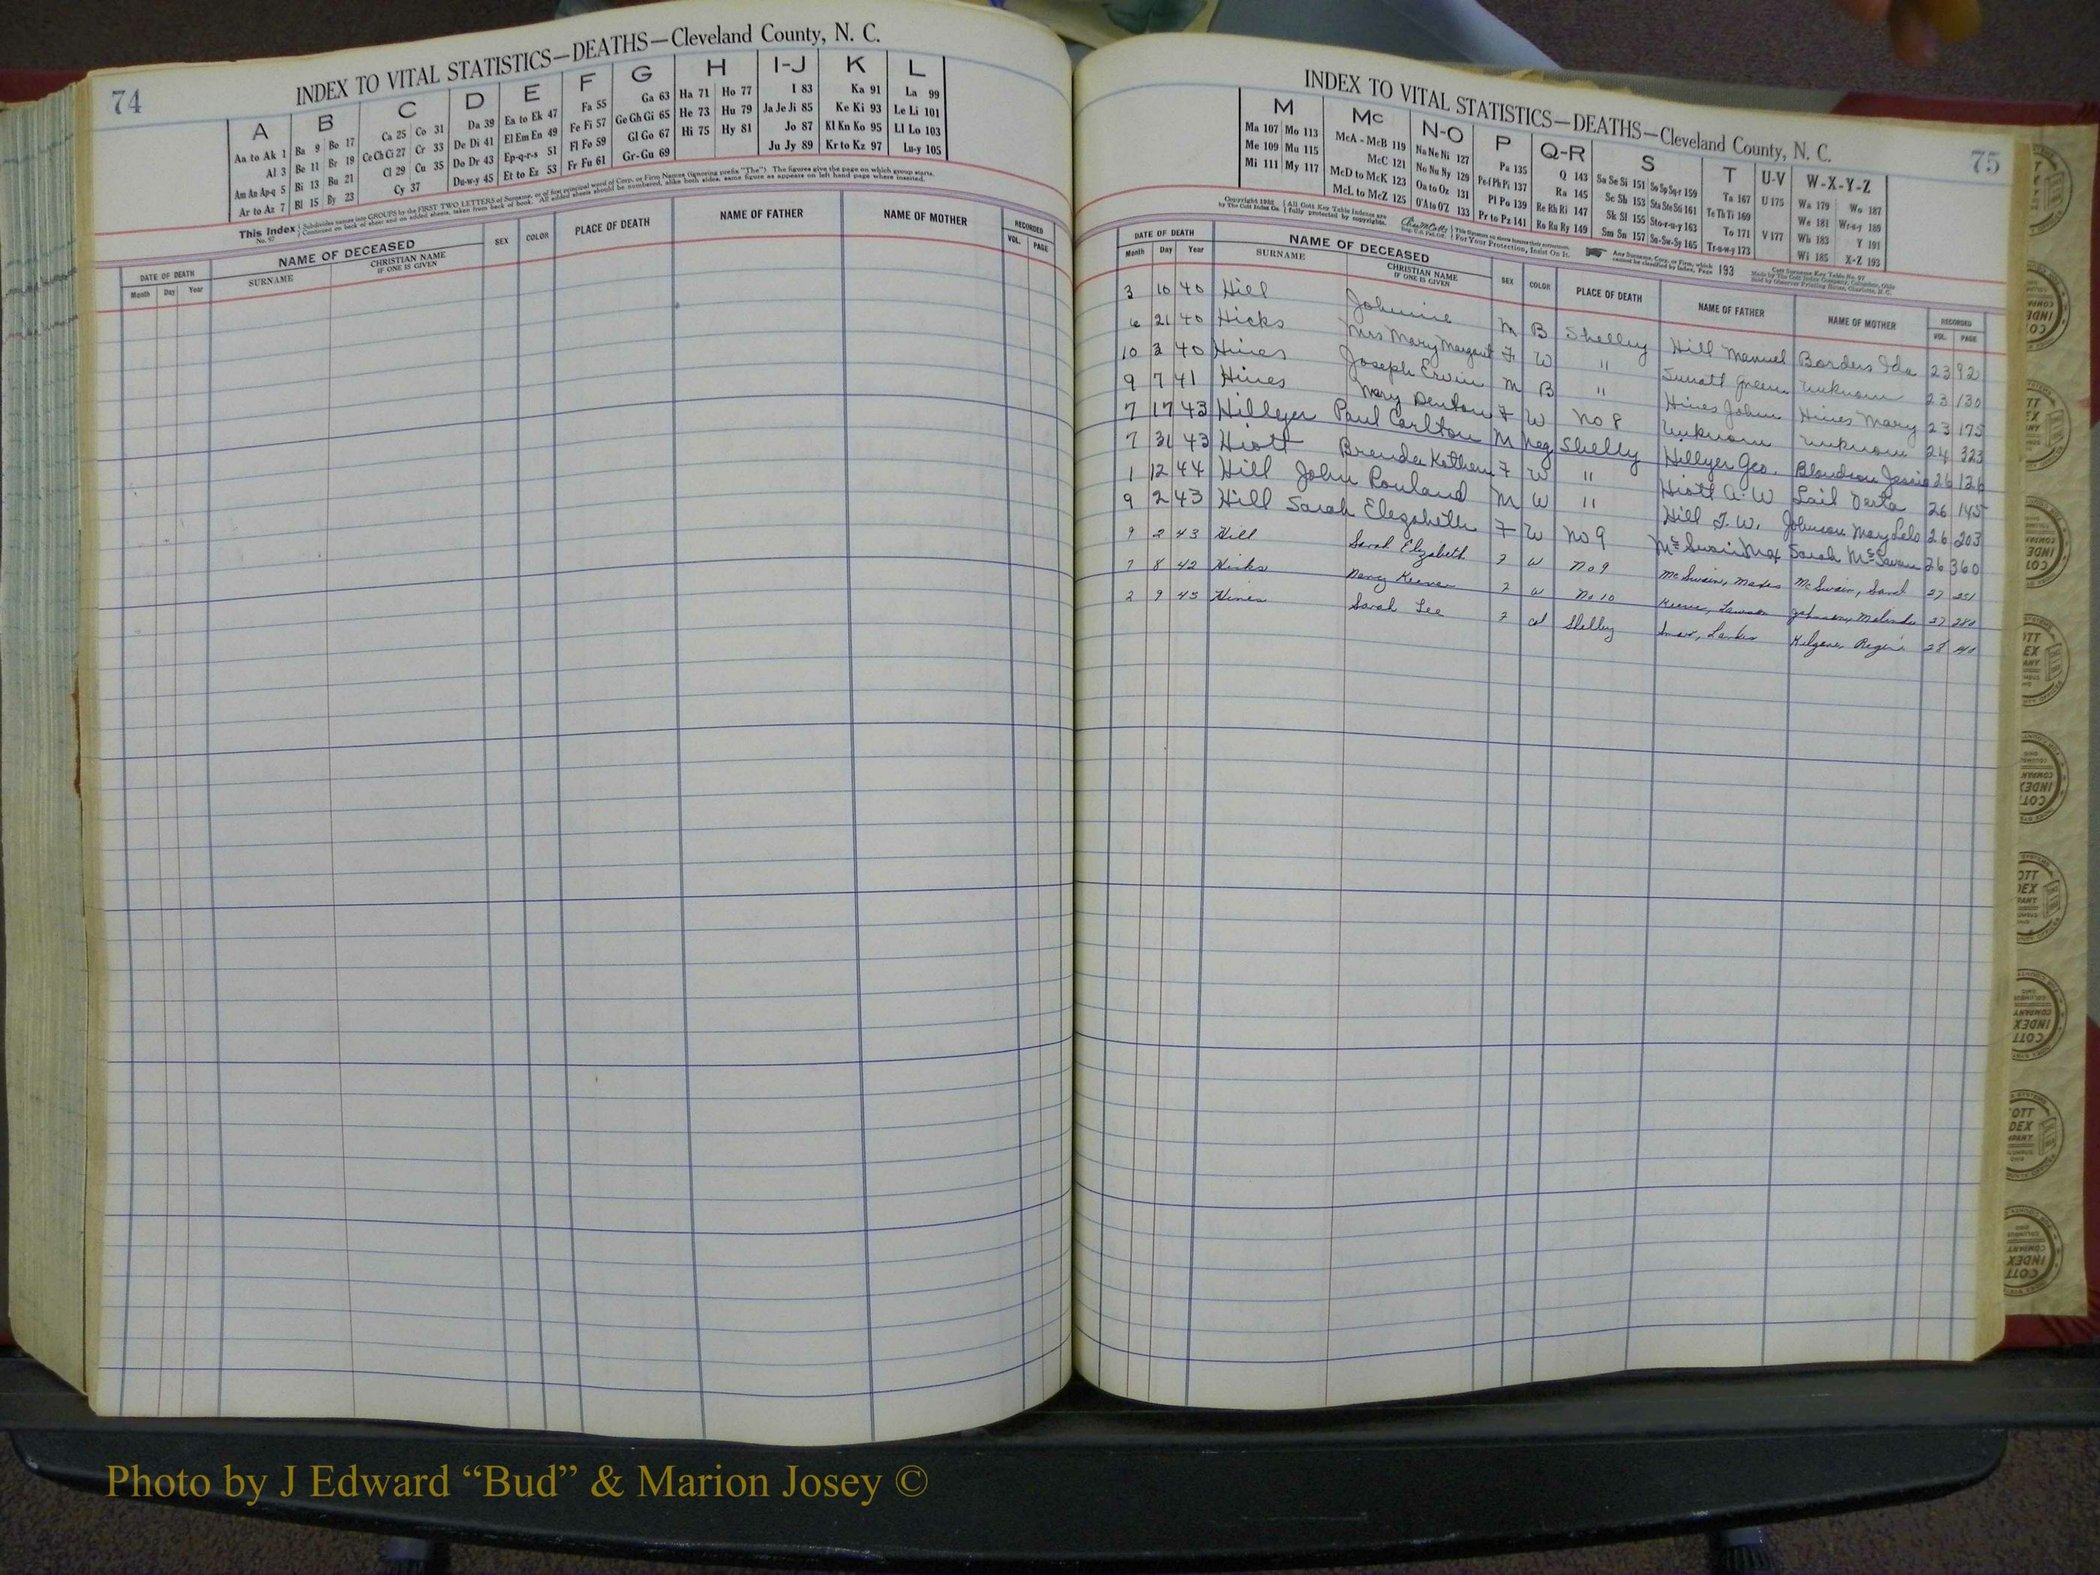 74
INDEX TO VITAL STATISTICS—DEATHS—Cleveland County, N. C.
A B C D E F G H I-J K L
Aa to Ak 1 Ba 9 Bo 17 Ca 25 Co 31 Da 39 Ea to Ek 47 Fa 55 Ga 63 Ha 71 Ho 77 I 83 Ka 91 La 99
Al 3 Be 11 Br 19 Ce Ch Ci 27 Cr 33 De Di 41 El Em En 49 Fe Fi 57 Ge Gh Gi 65 He 73 Hu 79 Ja Je Ji 85 Ke Ki 93 Le Li 101
Am An Ap-q 5 Bi 13 Bu 21 Cl 29 Cu 35 Do Dr 43 Ep-q-r-s 51 Fl Fo 59 Gl Go 67 Hi 75 Hy 81 Jo 87 Kl Kn Ko 95 Ll Lo 103
Ar to Az 7 Bl 15 By 23 Cy 37 Du-w-y 45 Et to Ez 53 Fr Fu 61 Gr-Gu 69 Ju Jy 89 Kr to Kz 97 Lu-y 105
This Index No. 97 Subdivides names into GROUPS by the FIRST TWO LETTERS of Surname, or of first principal word of Corp. or Firm Names (ignoring prefix "The"). The figures give the page on which group starts.
Continued on back of sheet and on added sheets, taken from back of book. All added sheets should be numbered, alike both sides, same figure as appears on left hand page where inserted.
DATE OF DEATH NAME OF DECEASED SEX COLOR PLACE OF DEATH NAME OF FATHER NAME OF MOTHER RECORDED
Month Day Year SURNAME CHRISTIAN NAME IF ONE IS GIVEN VOL. PAGE
INDEX TO VITAL STATISTICS—DEATHS—Cleveland County, N. C.
75
M Mc N-O P Q-R S T U-V W-X-Y-Z
Ma 107 Mo 113 McA - McB 119 Na Ne Ni 127 Pa 135 Q 143 Sa Se Si 151 So Sp Sq-r 159 Ta 167 U 175 Wa 179 Wo 187
Me 109 Mu 115 McC 121 No Nu Ny 129 Pe-f Ph Pi 137 Ra 145 Sc Sh 153 Sta Ste Sti 161 Te Th Ti 169 We 181 Wr-u-y 189
Mi 111 My 117 McD to McK 123 Oa to Oz 131 Pl Po 139 Re Rh Ri 147 Sk Sl 155 Sto-r-u-y 163 To 171 V 177 Wh 183 Y 191
McL to McZ 125 O'A to O'Z 133 Pr to Pz 141 Ro Ru Ry 149 Sm Sn 157 Su-Sw-Sy 165 Tr-u-w-y 173 Wi 185 X-Z 193
Copyright by The Cott Index Co. All Cott Key Table Indexes are fully protected by copyrights. For Your Protection, Insist On It. Any Surname, Corp. or Firm, which cannot be classified by Index, Page 193 Cott Surname Key Table No. 97 Made by The Cott Index Company, Columbus, Ohio Sold by Observer Printing House, Charlotte, N. C.
DATE OF DEATH NAME OF DECEASED SEX COLOR PLACE OF DEATH NAME OF FATHER NAME OF MOTHER RECORDED
Month Day Year SURNAME CHRISTIAN NAME IF ONE IS GIVEN VOL. PAGE
3 10 40 Hill Johnnie M B Shelby Hill Manuel Borders Ida 23 92
6 21 40 Hicks Mrs Mary Margaret F W " Green unknown 23 130
10 3 40 Hines Joseph Ervin M B " Hines John Hines Mary 23 175
9 7 41 Hines Mary Denton F W No 8 Unknown unknown 24 323
7 17 43 Hillyer Paul Carlton M Neg Shelby Hillyer Geo. Jessie 26 126
7 31 43 Hiott Brenda Kathern F W " Hiott A. W Lail 26 145
1 12 44 Hill John Rouland M W " Hill T. W. Johnson Mary Lela 26 203
9 2 43 Hill Sarah Elezabeth F W No 9 McSwain Max Sarah McSwain 26 360
9 2 43 Hill Sarah Elizabeth F W No 9 McSwain, McSwain, Sarah 27 251
7 8 42 Hicks Nancy Keever F W No 10 Keever, Lawson Johnson, Malinda 27 280
2 9 45 Hines Sarah Lee F col Shelby Kilgore, 28
Photo by J Edward “Bud” & Marion Josey ©